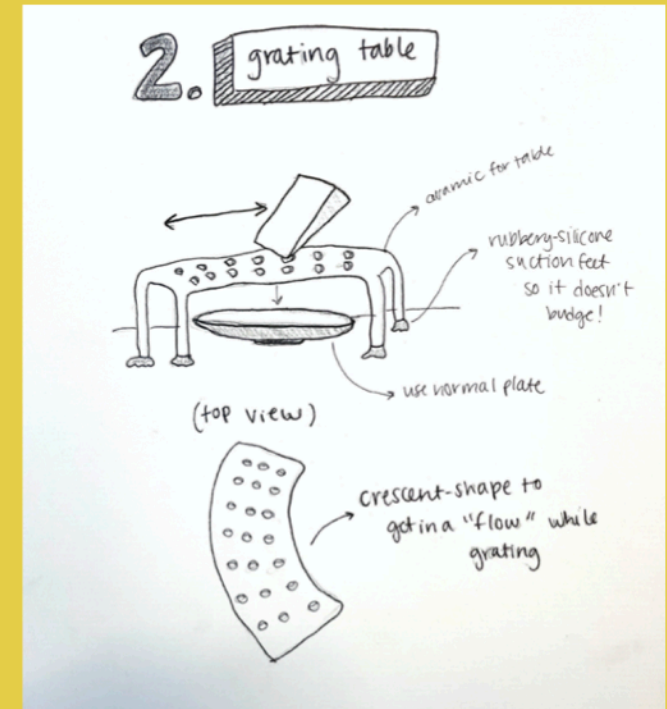 2. grating table
ceramic for table
rubbery-silicone
suction feet
so it doesn't
budge!
use normal plate
(top view)
crescent-shape to
get in a "flow" while
grating